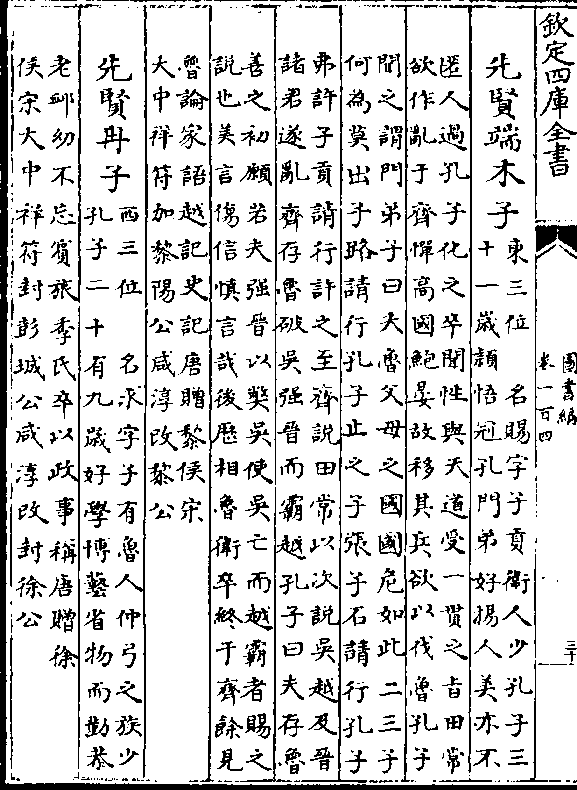 欽定四庫全書
圖書編
卷一百四
三十
先賢端木子
東三位 名賜字子貢衛人少孔子三
十一歲頴悟冠孔門弟好揚人美亦不
匿人過孔子化之卒聞性與天道受一貫之旨田常
欲作亂于齊憚高國鮑晏故移其兵欲以伐魯孔子
聞之謂門弟子曰夫魯父母之國國危如此二三子
何為莫出子路請行孔子止之子張子石請行孔子
弗許子貢請行許之至齊說田常以次說吳越及晉
諸君遂亂齊存魯破吳强晉而霸越孔子曰夫存魯
善之初願若夫强晉以獘吳使吳亡而越霸者賜之
說也美言傷信慎言哉後歴相魯衛卒終于齊餘見
魯論家語越記史記唐贈黎侯宋
大中祥符加黎陽公咸淳改黎公
先賢冉子
西三位 名求字子有魯人仲弓之族少
孔子二十有九歲好學博藝省物而勤恭
老䘏幼不忘賓旅季氏卒以政事稱唐贈徐
侯宋大中祥符封彭城公咸淳改封徐公